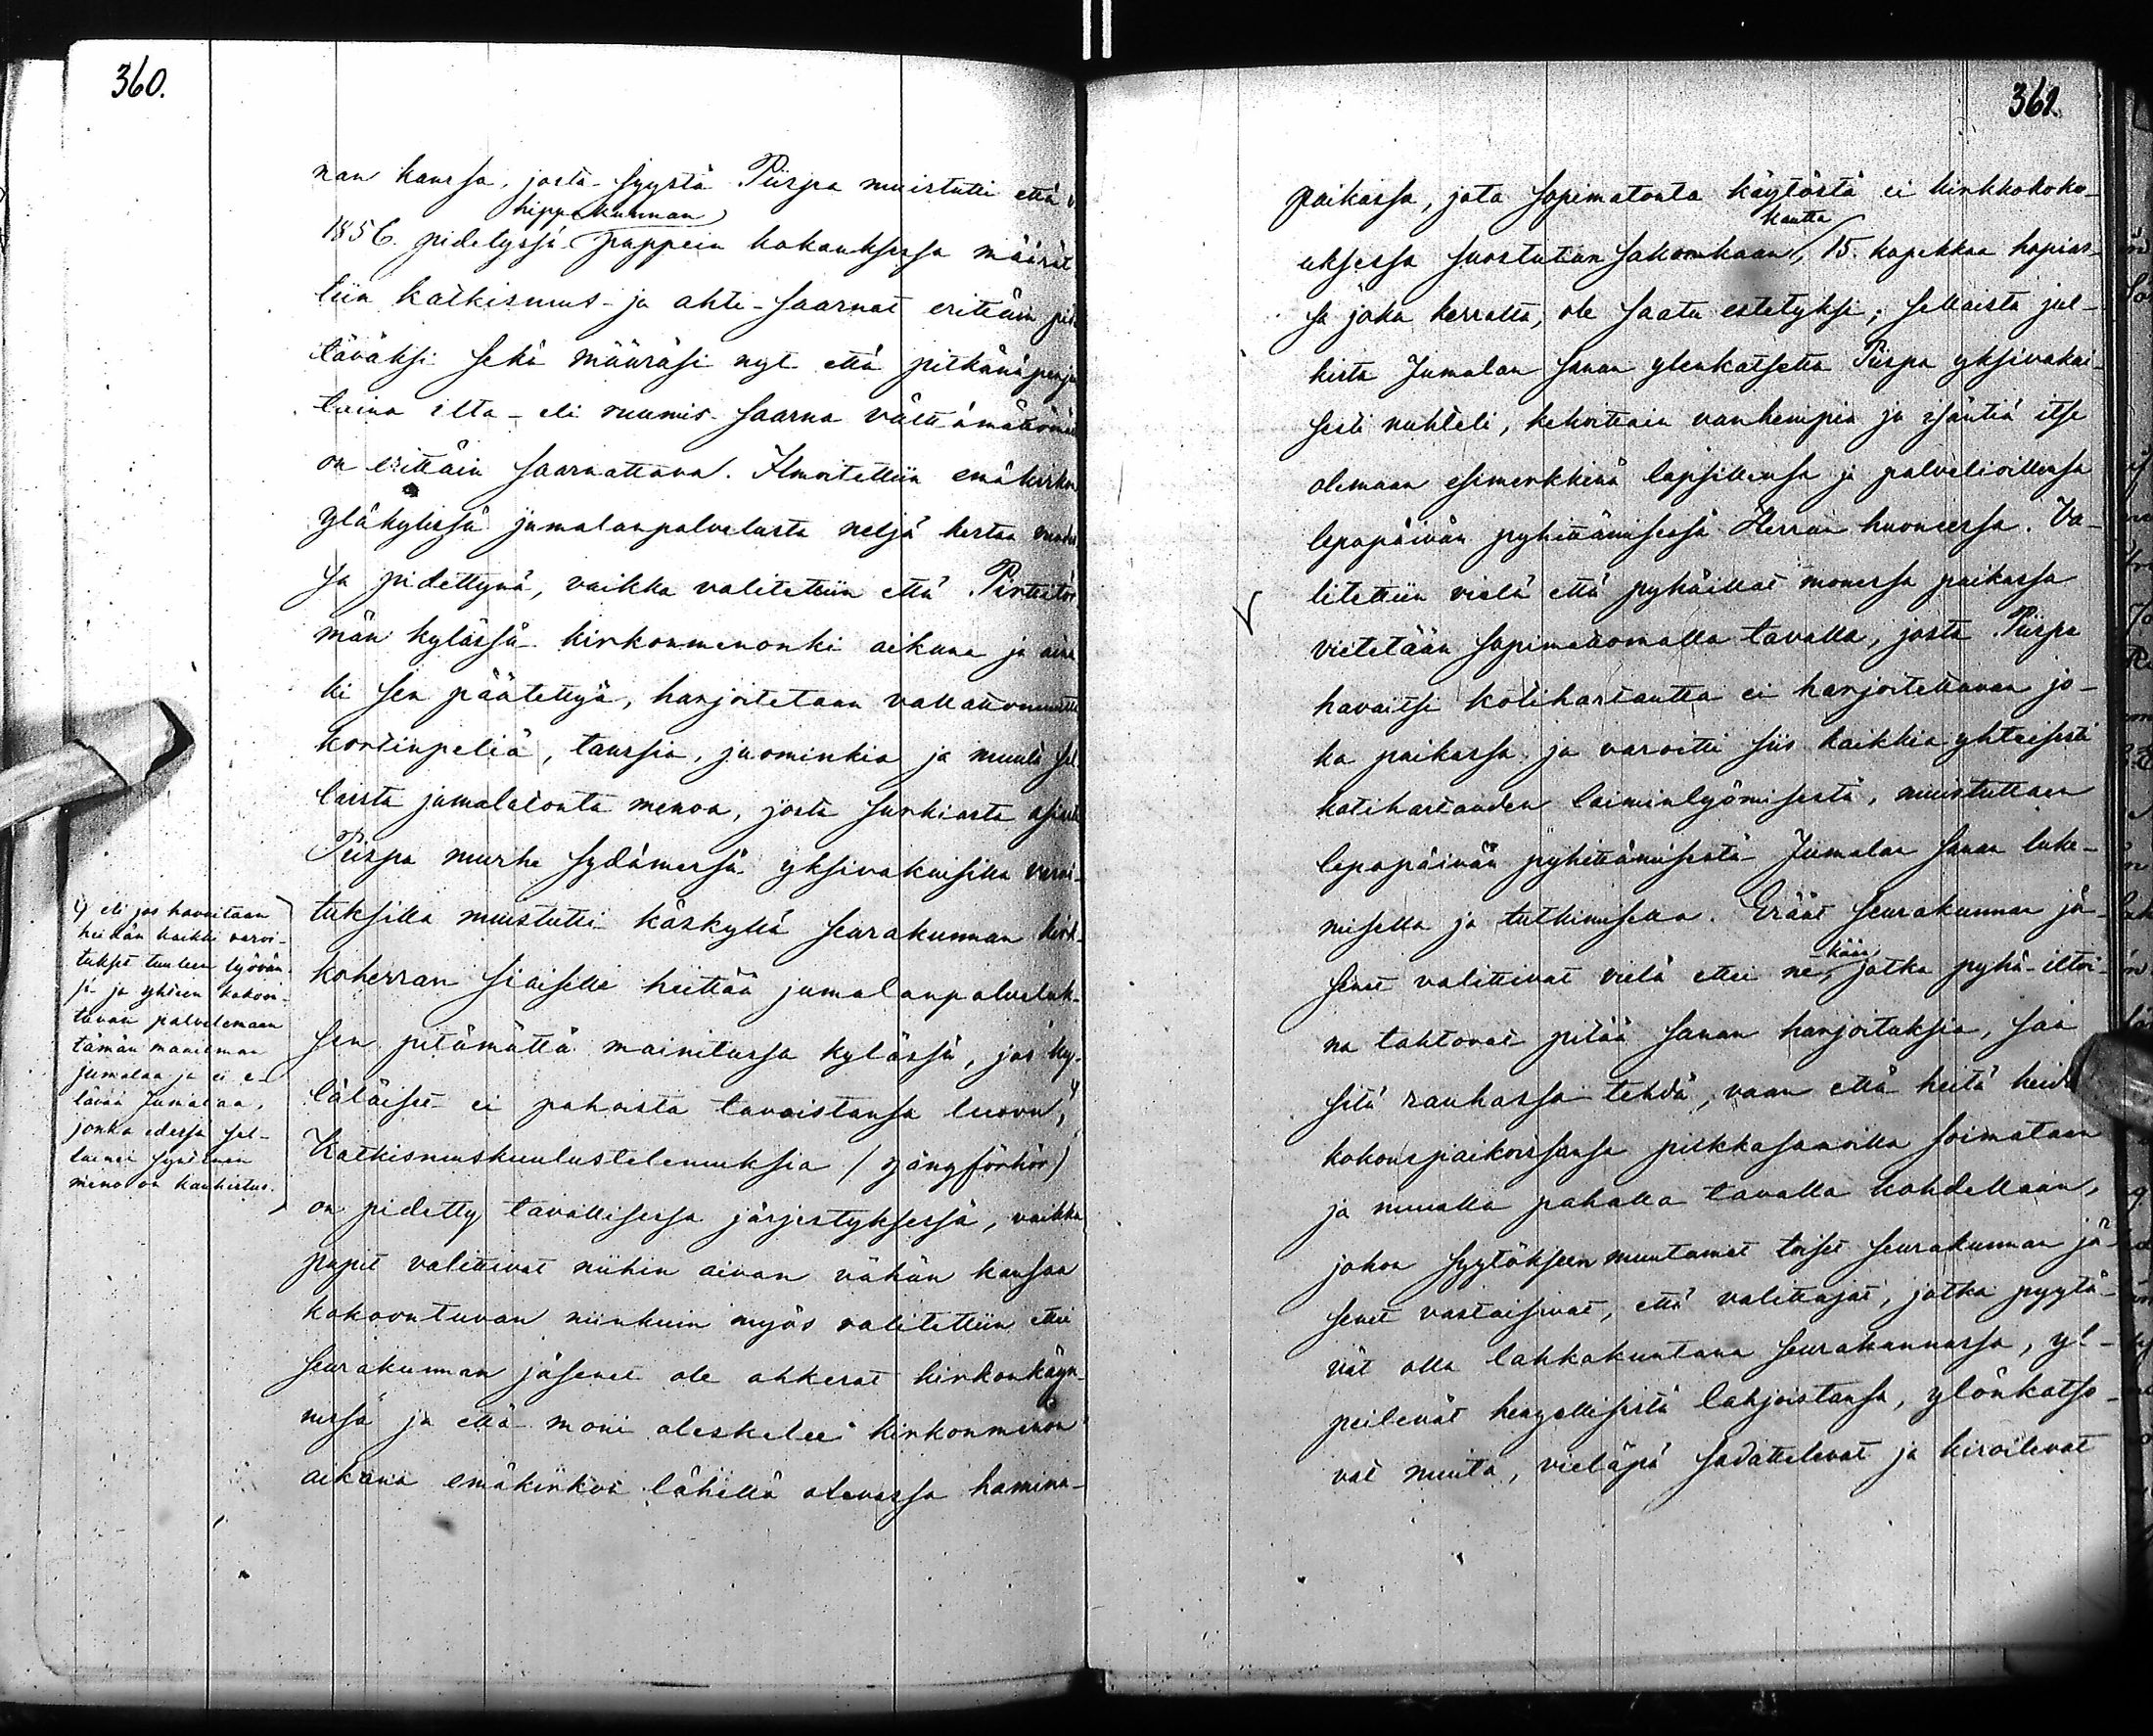 360.
nan kanssa, josta syystä Piispa muistutti että
hippakunnan
1856. pidetyssä pappein kokouksessa määrät
tiin katkismus- ja ahti-saarnat erittäin pi-
täväksi sekä määräsi nyt että pitkänäperjan
taina ilta- eli ruumis-saarna välttämättömä
on erittäin saarnattava. Ilmoitettiin emäkirkon
yläkylissä jumalanpalvelusta neljä kertaa vuode
sa pidettynä, vaikka valitettiin että
män kylässä kirkonmenonki aikana ja aina
ki sen päätettyä, harjoitetaan vallattomuutta
kortinpeliä, tanssia, juominkia ja muuta sel
laista jumalatonta menoa, josta surkiasta asiasta
Piispa murhe sydämessä yksivakaisilla varoi-
tuksilla muistutti käskyllä seurakunnan kirk-
koherran siaiselle heittää jumalanpalveluk-
sen pitämättä mainitussa kylässä, jos ky-
läläiset ei pahoista tavoistansa luovu,
Katkismuskuulustelemuksia / gångförhör /
on pidetty tavallisessa järjestyksessä, vaikka
papit valittivat niihin aivan vähän kansaa
kokoontuvan niinkuin myös valitettiin ettei
seurakunnan jäsenet ole ahkerat kirkonkäyn-
nissä ja että moni oleskelee kirkonmenon
aikana emäkirkon lähellä olevassa hamina-
4) eli jos havaitaan
heidän kaikki varoi-
tukset tuuleen lyövän-
sä ja yhteen kokoon-
tuvan palvelemaan
tämän maailman
jumalaa ja ei e-
lävää Jumalaa,
jonka edessä sel-
lainen syntinen
meno on kauhistus.
361.
paikassa, jota sopimatonta käytöstä ei kirkkokoko-
kautta
uksessa suostutun sakonkaan, 15. kopekkaa hopias-
sa joka kerralta, ole saatu estetyksi; sellaista jul-
kista Jumalan sanan ylenkatsetta Piispa yksivakai-
sesti nuhteli, kehoittain vanhempia ja isäntiä itse
olemaan esimerkkinä lapsillensa ja palvelioillensa
lepopäivän pyhittämisessä Herran huoneessa. Va-
litettiin vielä että pyhäillat monessa paikassa
vietetään sopimattomalla tavalla, josta Piispa
havaitsi kotihartautta ei harjoitettavan jo-
ka paikassa ja varoitti siis kaikkia yhteisesti
kotihartauden laiminlyömisestä, muistuttaen
lepopäivän pyhittämisestä Jumalan sanan luke-
misella ja tutkimisella. Eräät seurakunnan jä-
kään
senet valittivat vielä ettei ne, jotka pyhä-iltoi-
na tahtovat pitää sanan harjoituksia, saa
sitä rauhassa tehdä, vaan että heitä heidän
kokouspaikoissansa pilkkasanoilla soimataan
ja muulla pahalla tavalla kohdellaan,
johon syytökseen muutamat toiset seurakunnan jä-
senet vastaisivat, että valittajat, jotka pyytä-
vät olla lahkokuntana seurakunnassa, yl-
peilevät hengellisistä lahjoistansa, ylönkatso-
vat muita, vieläpä sadattelevat ja kiroilevat